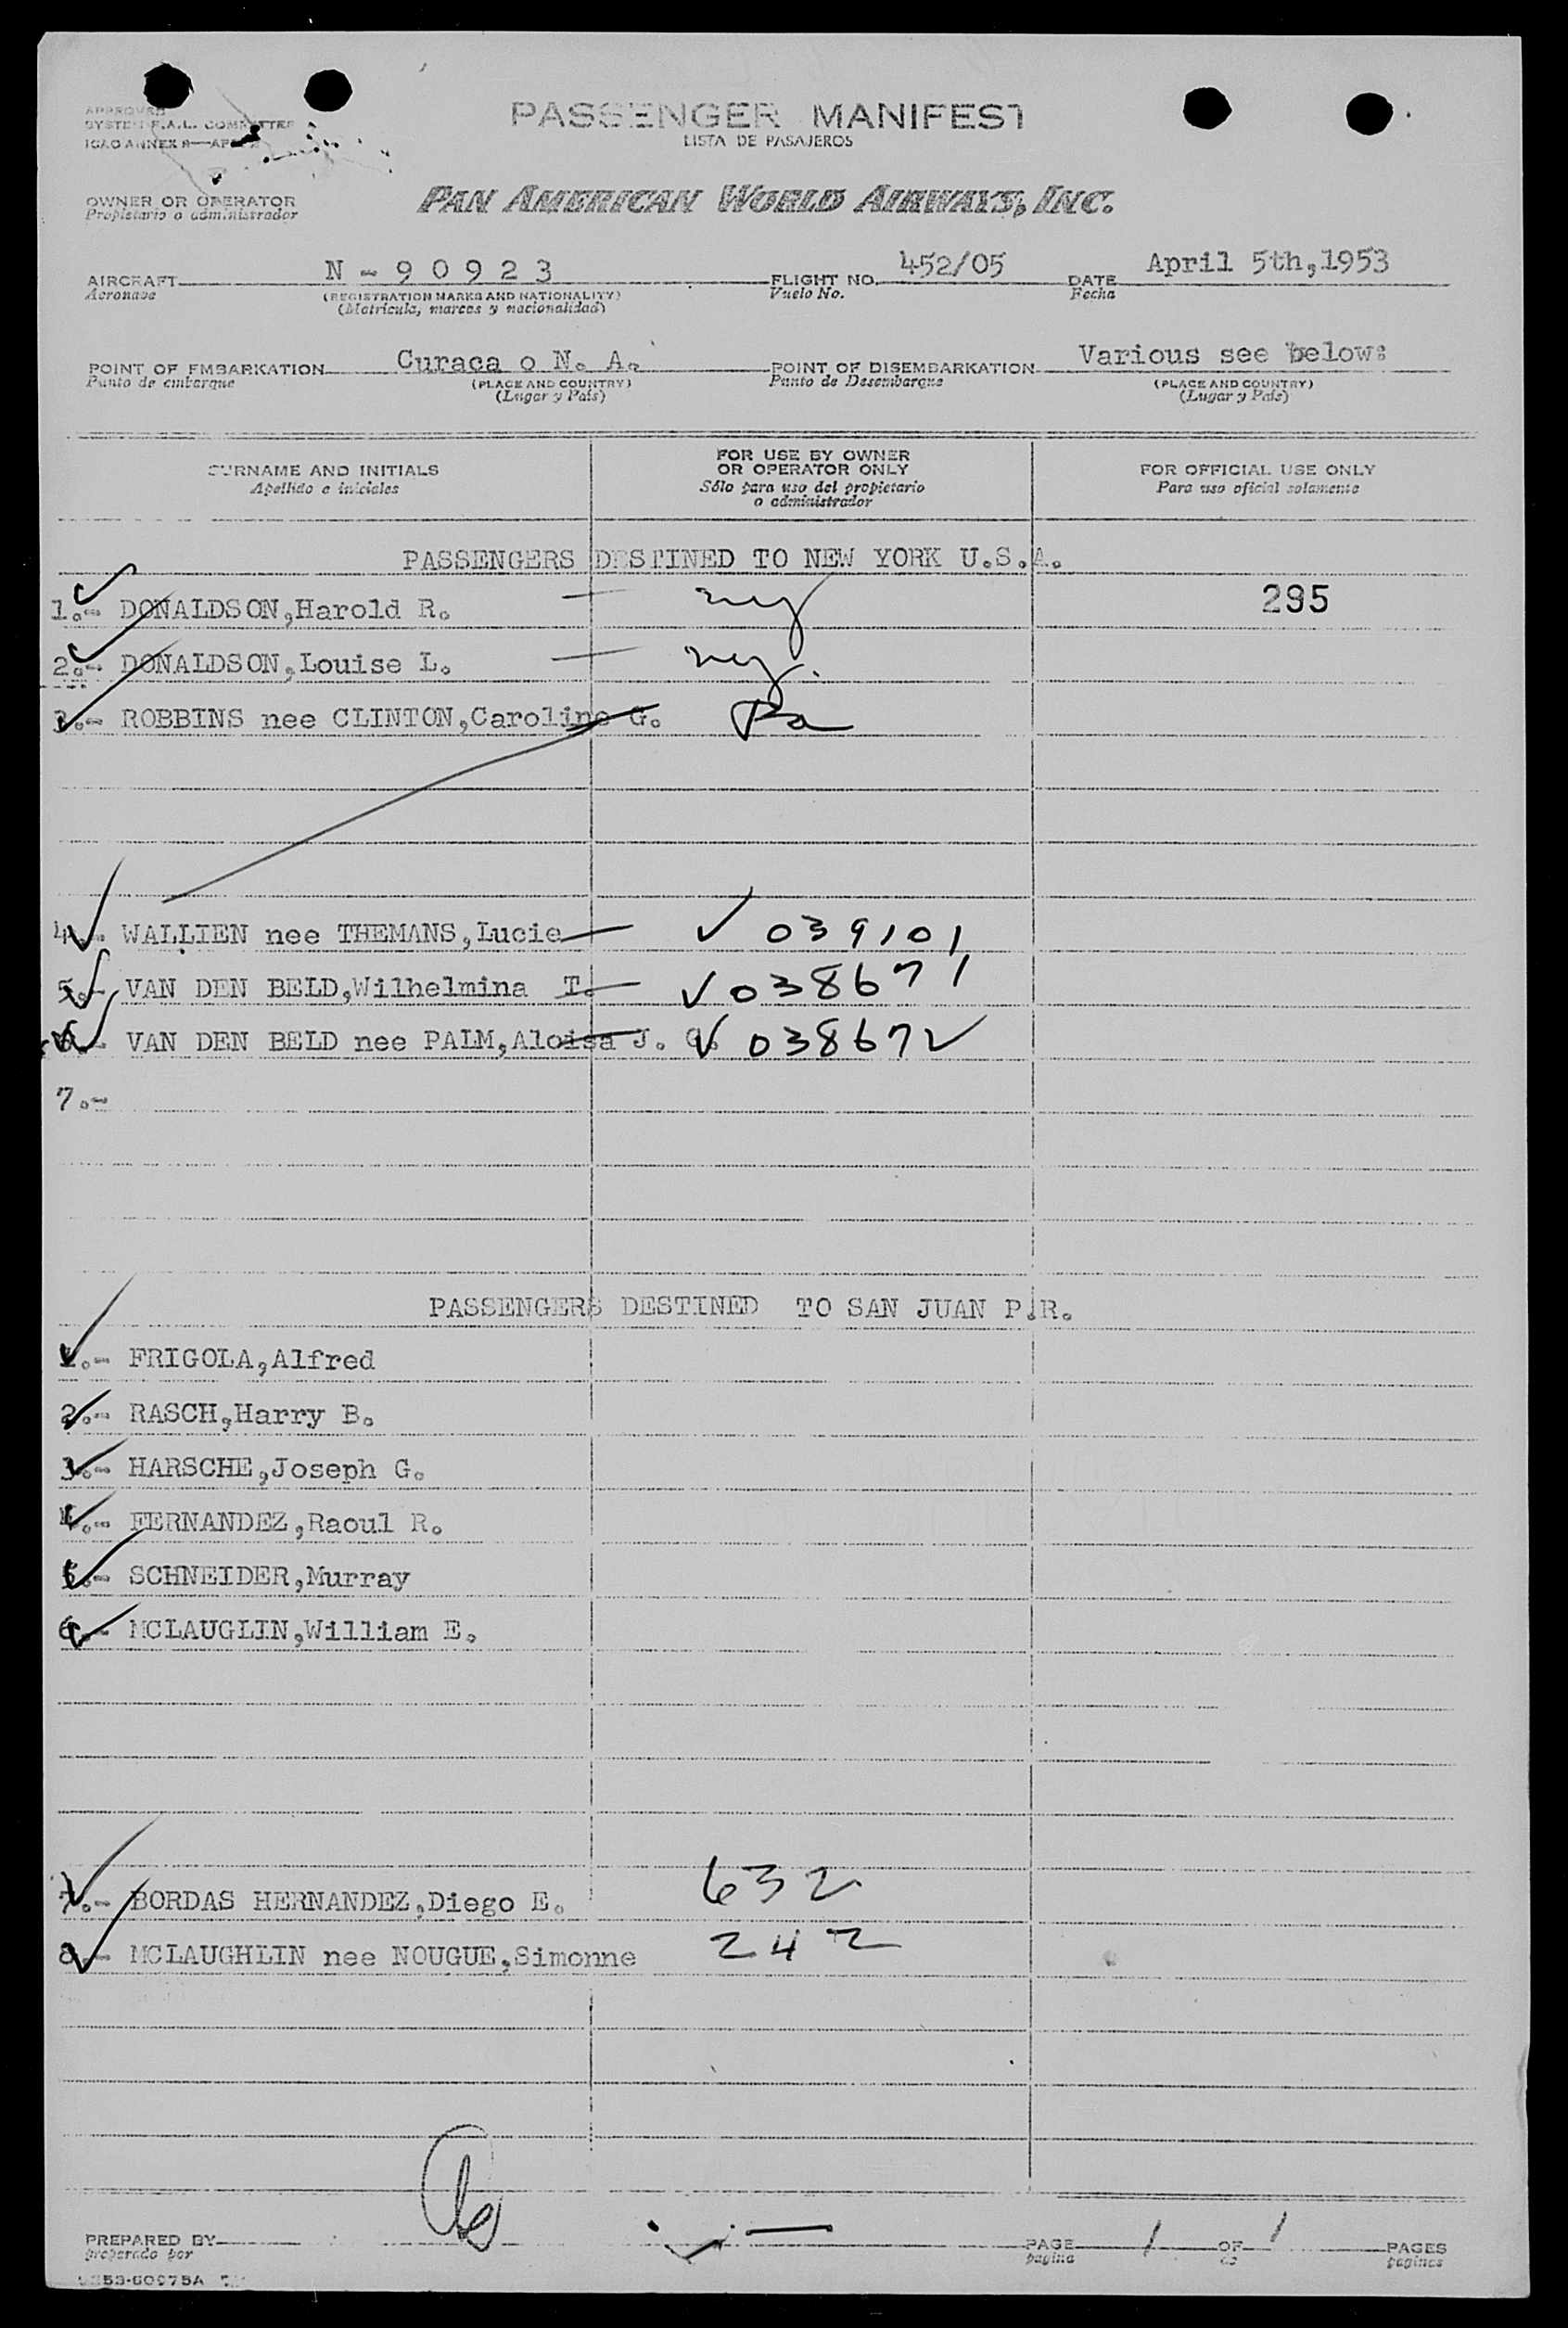 APPROVED
SYSTEM F.A.L. COMMITTEE
ICAO ANNEX 9—
PASSENGER MANIFEST
LISTA DE PASAJEROS
OWNER OR OPERATOR
Propietario o administrador
PAN AMERICAN WORLD AIRWAYS, INC.
AIRCRAFT N - 9 0 9 2 3 FLIGHT NO. 452/05 DATE April 5th,1953
Aeronave (REGISTRATION MARKS AND NATIONALITY) Vuelo No. Fecha
(Matricula, marcas y nacionalidad)
POINT OF EMBARKATION Curaca o N. A. POINT OF DISEMBARKATION Various see below:
Punto de embarque (PLACE AND COUNTRY) Punto de Desembarque (PLACE AND COUNTRY)
(Lugar y País) (Lugar y País)
SURNAME AND INITIALS
Apellido e iniciales
FOR USE BY OWNER
OR OPERATOR ONLY
Sólo para uso del propietario
o administrador
FOR OFFICIAL USE ONLY
Para uso oficial solamente
PASSENGERS DESTINED TO NEW YORK U.S.A.
1.- DONALDSON,Harold R. — ny 295
2.- DONALDSON,Louise L. — ny.
3.- ROBBINS nee CLINTON,Caroline G. Pa
4.- WALLIEN nee THEMANS,Lucie — ✓ 039101
5.- VAN DEN BELD,Wilhelmina T. — ✓ 038671
6.- VAN DEN BELD nee PALM,Aloisa J. C. ✓ 038672
7.-
PASSENGERS DESTINED TO SAN JUAN P.R.
1.- FRIGOLA,Alfred
2.- RASCH,Harry B.
3.- HARSCHE,Joseph G.
4.- FERNANDEZ,Raoul R.
5.- SCHNEIDER,Murray
6.- MCLAUGLIN,William E.
7.- BORDAS HERNANDEZ,Diego E. 632
8.- MCLAUGHLIN nee NOUGUE,Simonne 242
PREPARED BY PAGE 1 OF 1 PAGES
preparado por pagina de paginas